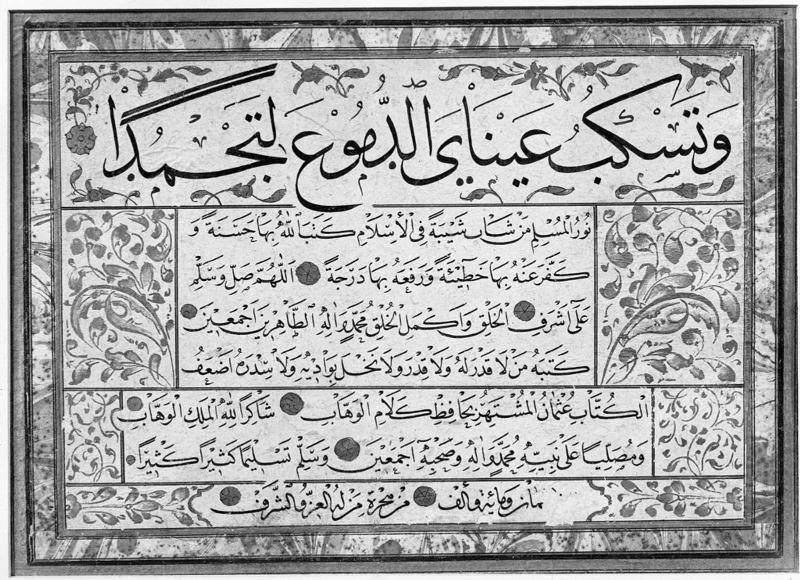 وَتَسْكُبُ عَيْنَايَ الدُّمُوعَ لِتَجْمُدَا
نُورُ الْمُسْلِمِ مَنْ شَابَ شَيْبَةً فِي الْاِسْلَامِ كَتَبَ اللّٰهُ بِهَا حَسَنَةً وَ
كَفَّرَ عَنْهُ بِهَا خَطِيئَةً وَرَفَعَهُ بِهَا دَرَجَةً اَللّٰهُمَّ صَلِّ وَسَلِّمْ
عَلَى اَشْرَفِ الْخَلْقِ وَاَكْمَلِ الْخَلْقِ مُحَمَّدٍ وَاٰلِهِ الطَّاهِرِينَ اَجْمَعِينَ
كَتَبَهُ مَنْ لَا قَدْرَ لَهُ وَلَا قَدَرَ وَلَا نَخْلَ بِوَادِيهِ وَلَا سِدْرَهُ اَضْعَفُ
الْكُتَّابِ عُثْمَانُ الْمُشْتَهِرُ بِحَافِظِ كَلَامِ الْوَهَّابِ شَاكِرًا لِلّٰهِ الْمَلِكِ الْوَهَّابِ
وَمُصَلِّيًا عَلَى نَبِيِّهِ مُحَمَّدٍ وَاٰلِهِ وَصَحْبِهِ اَجْمَعِينَ وَسَلَّمَ تَسْلِيمًا كَثِيرًا كَثِيرًا
ومائة والف من هجرة من له العز والشرف